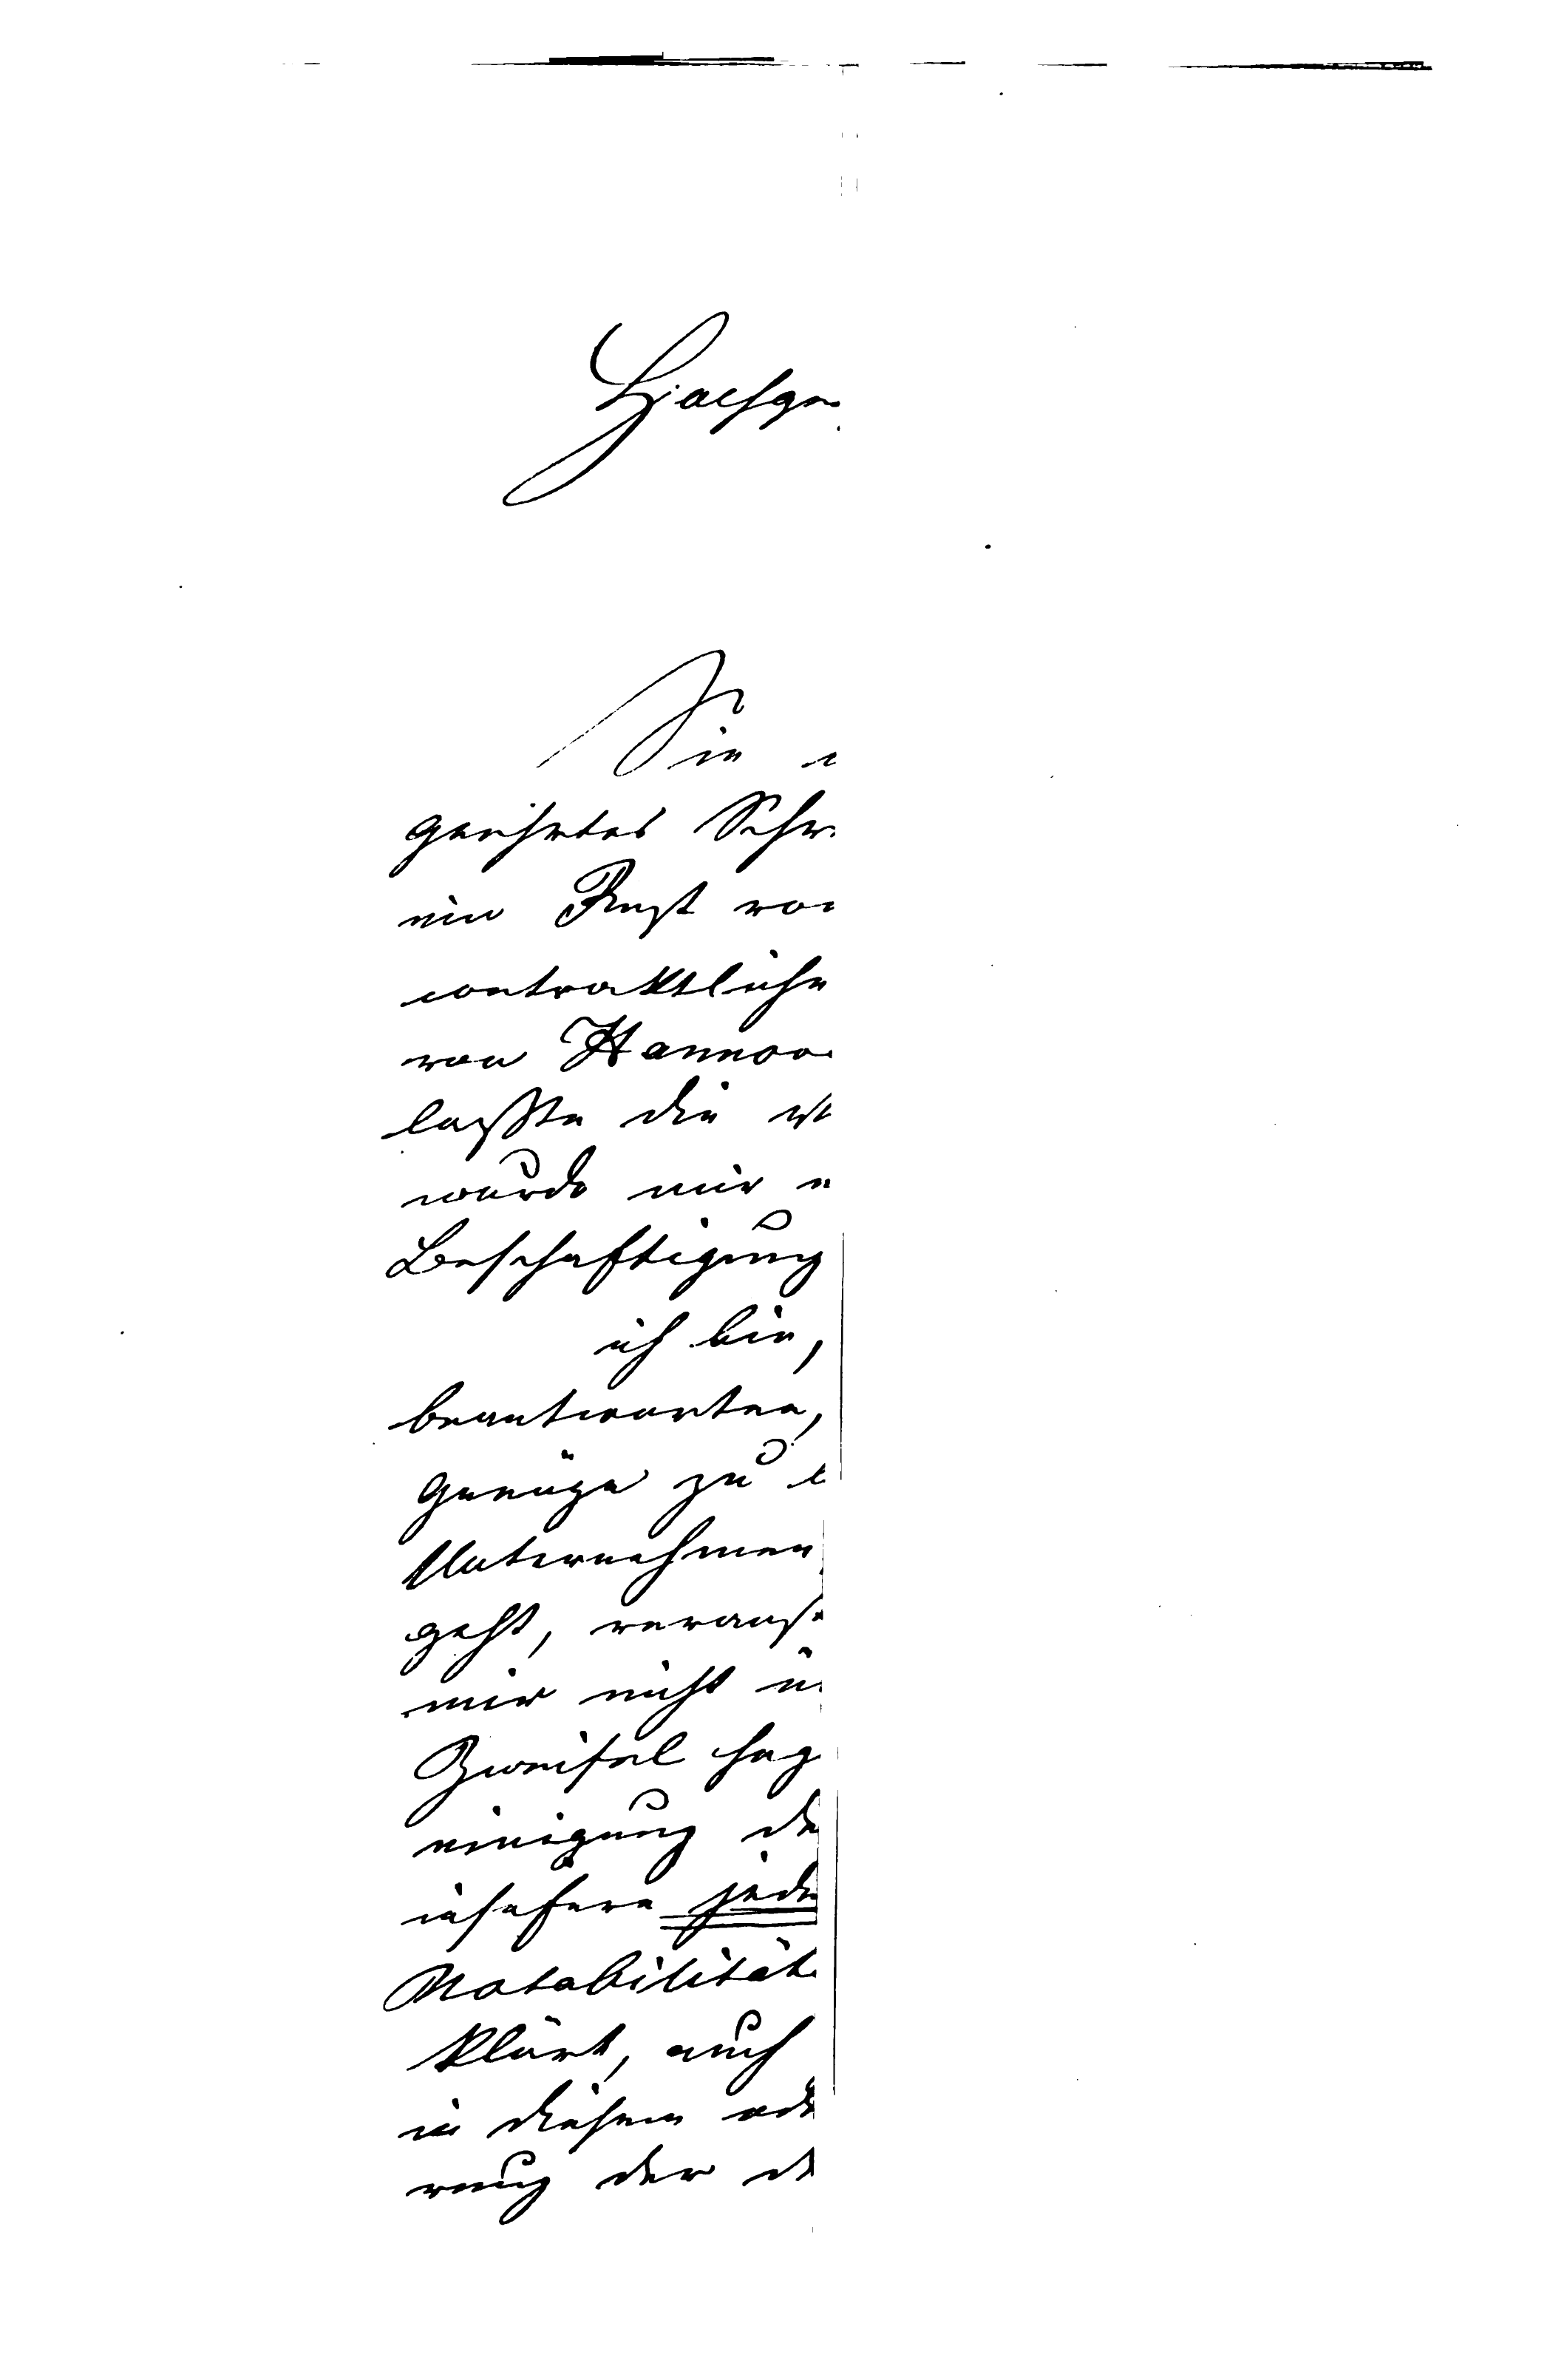 Hochge
Sie
geehrtes Schr
ein Rest von
contraktliche
von Hannov
laßte die
wurde mir
Beschäftigung
ich bin,
beantworten,
Genüge zu
Unternehmen
geht, verans
mir nicht
Zweifel heg
einigung de
insofern jede
Notabilität
klärt, auch
in diesem ode
rung der